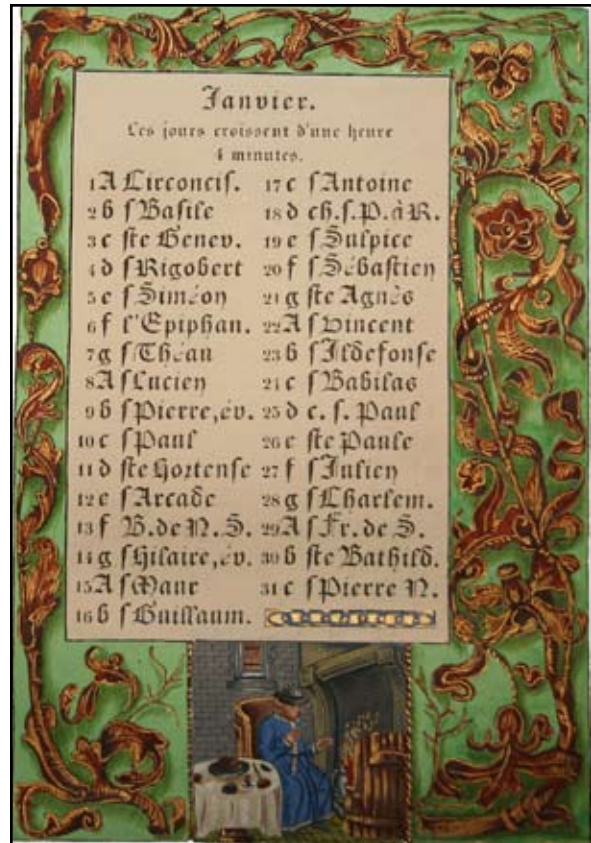 Janvier.
Les jours croissent d'une heure
4 minutes.
1 A Circoncis.
2 b s Basile
3 c ste Genev.
4 d s Rigobert
5 e s Siméon
6 f l'Epiphan.
7 g s Théau
8 A s Lucien
9 b s Pierre, év.
10 c s Paul
11 d ste Hortense
12 e s Arcade
13 f B. de N. S.
14 g s Hilaire, év.
15 A s Maur
16 b s Guillaum.
17 c s Antoine
18 d ch. s. P. à R.
19 e s Sulpice
20 f s Sébastien
21 g ste Agnès
22 A s Vincent
23 b s Ildefonse
24 c s Babilas
25 d c. s. Paul
26 e ste Paule
27 f s Julien
28 g s Charlem.
29 A s Fr. de S.
30 b ste Bathild.
31 c s Pierre N.